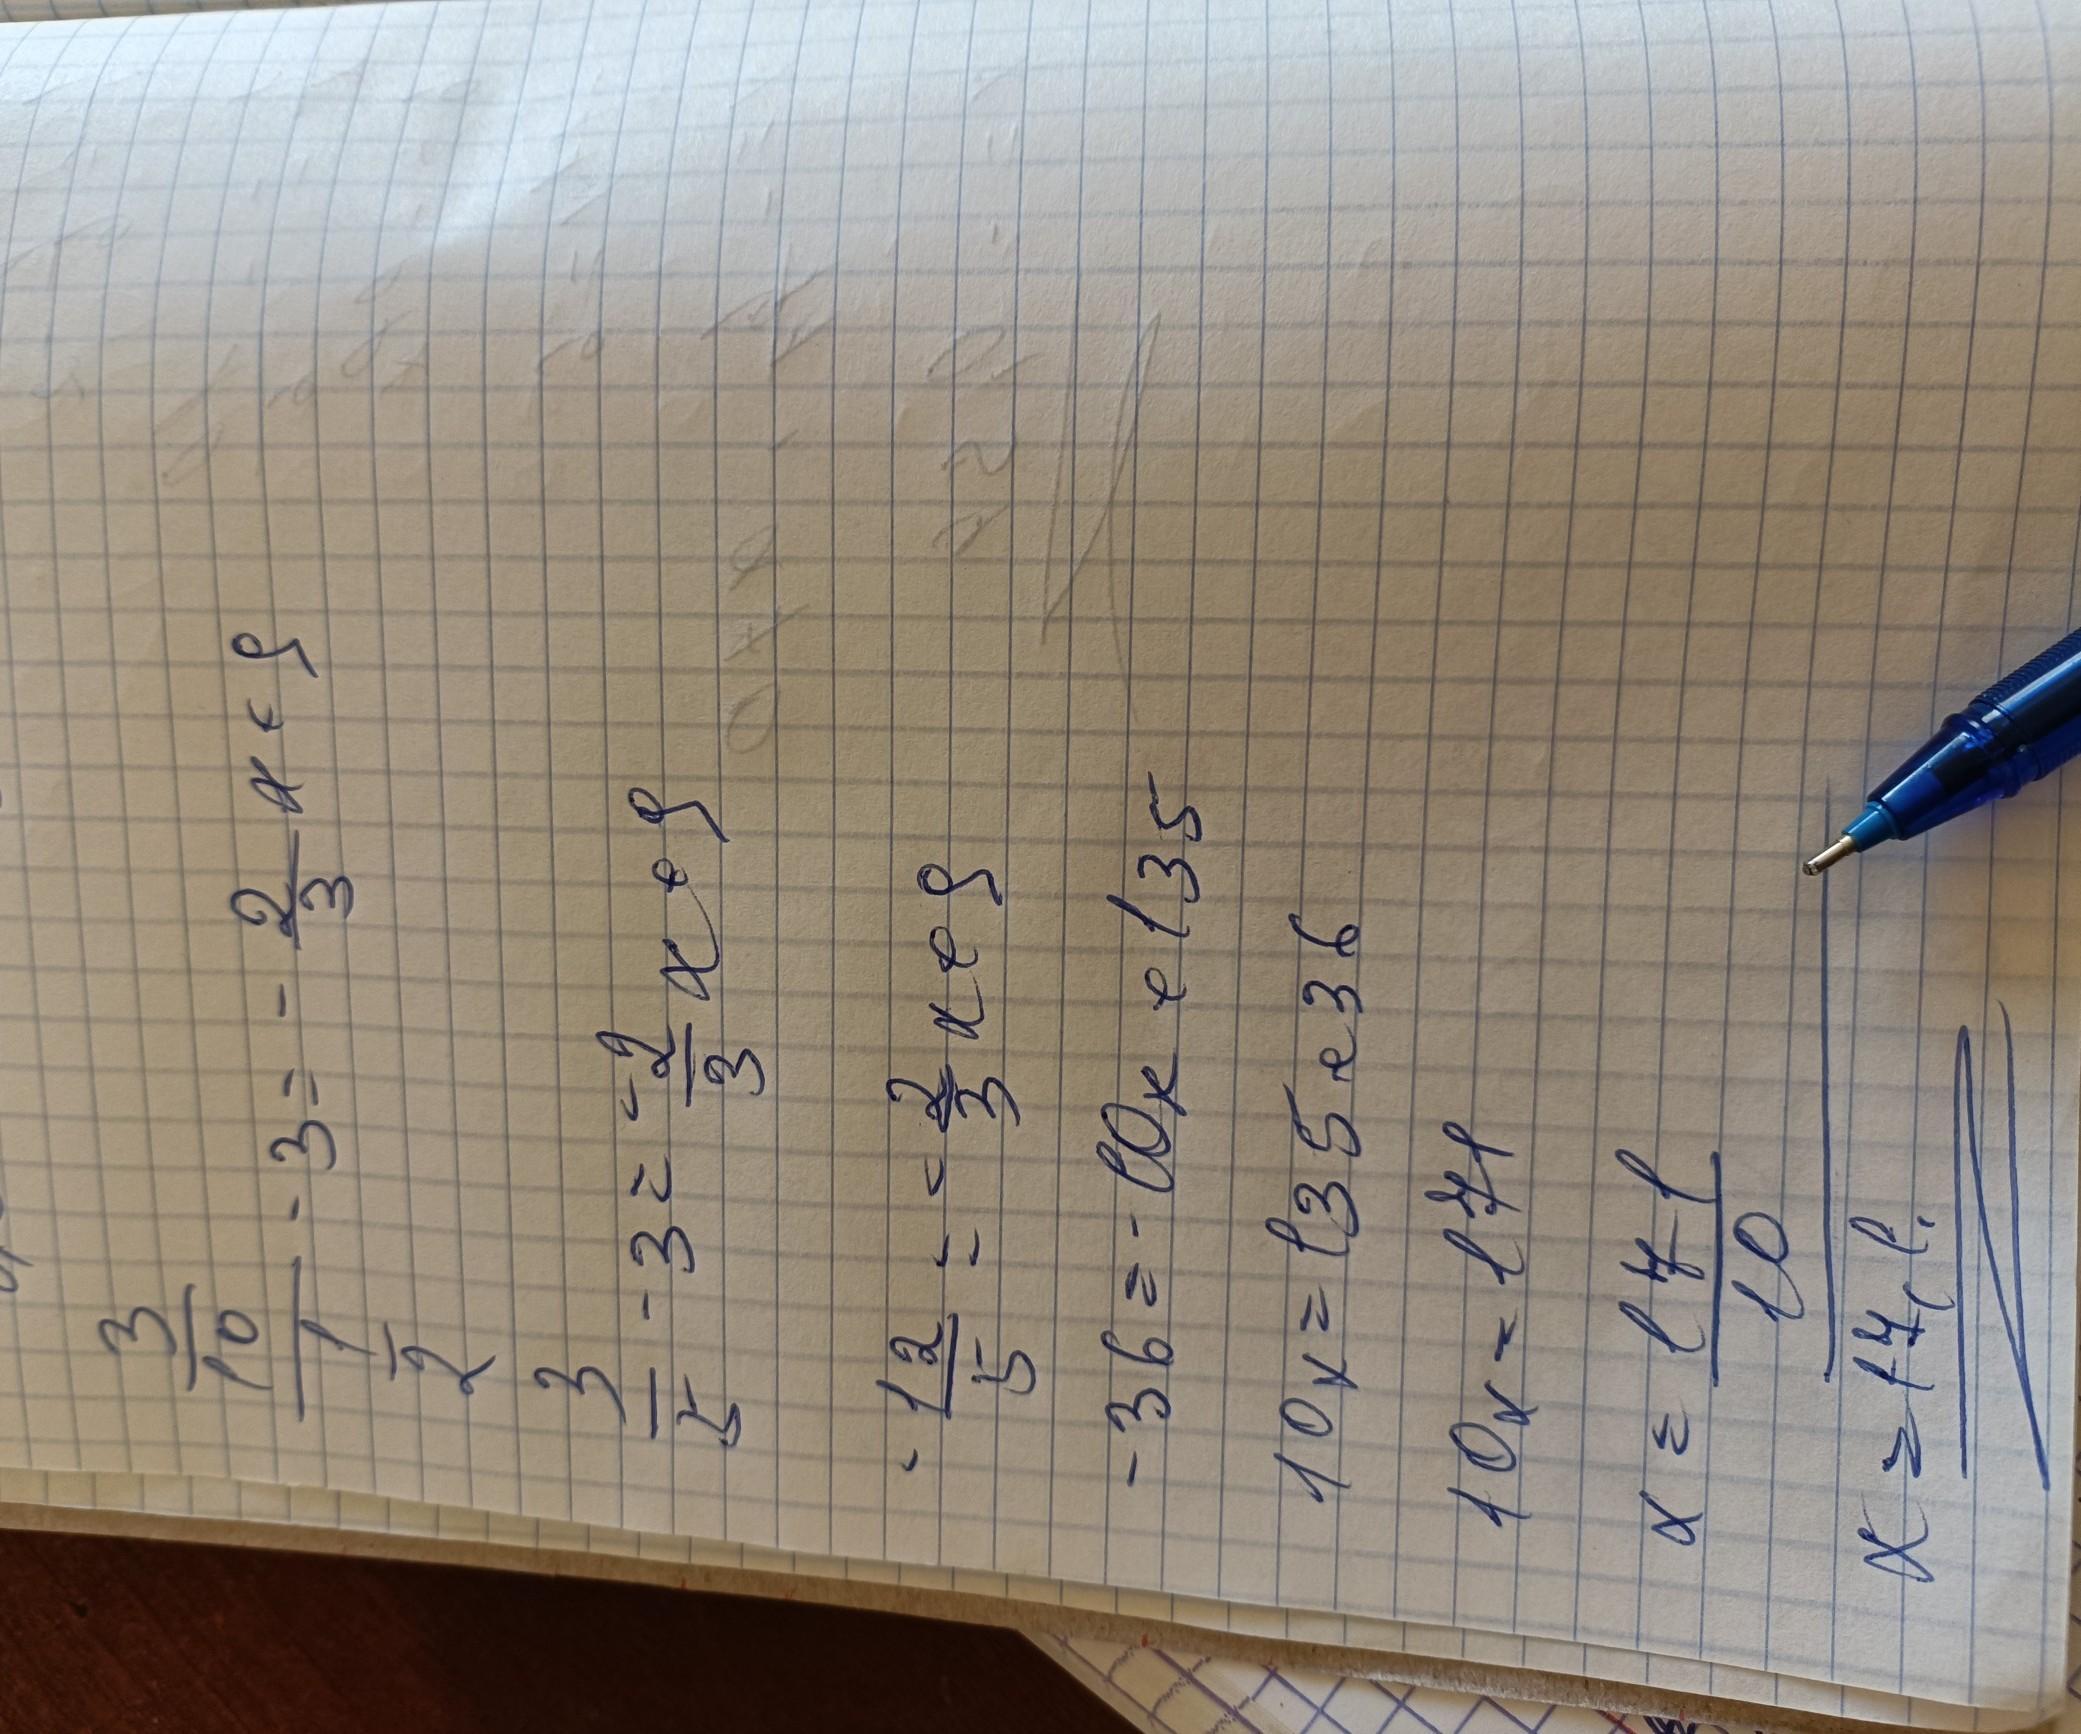 3/10 / 1/2 - 3 = - 2/3 x + 9
3/5 - 3 = - 2/3 x + 9
- 12/5 = - 2/3 x + 9
- 36 = - 10x + 135
10x = 135 + 36
10x = 171
x = 171/10
x = 17,1.